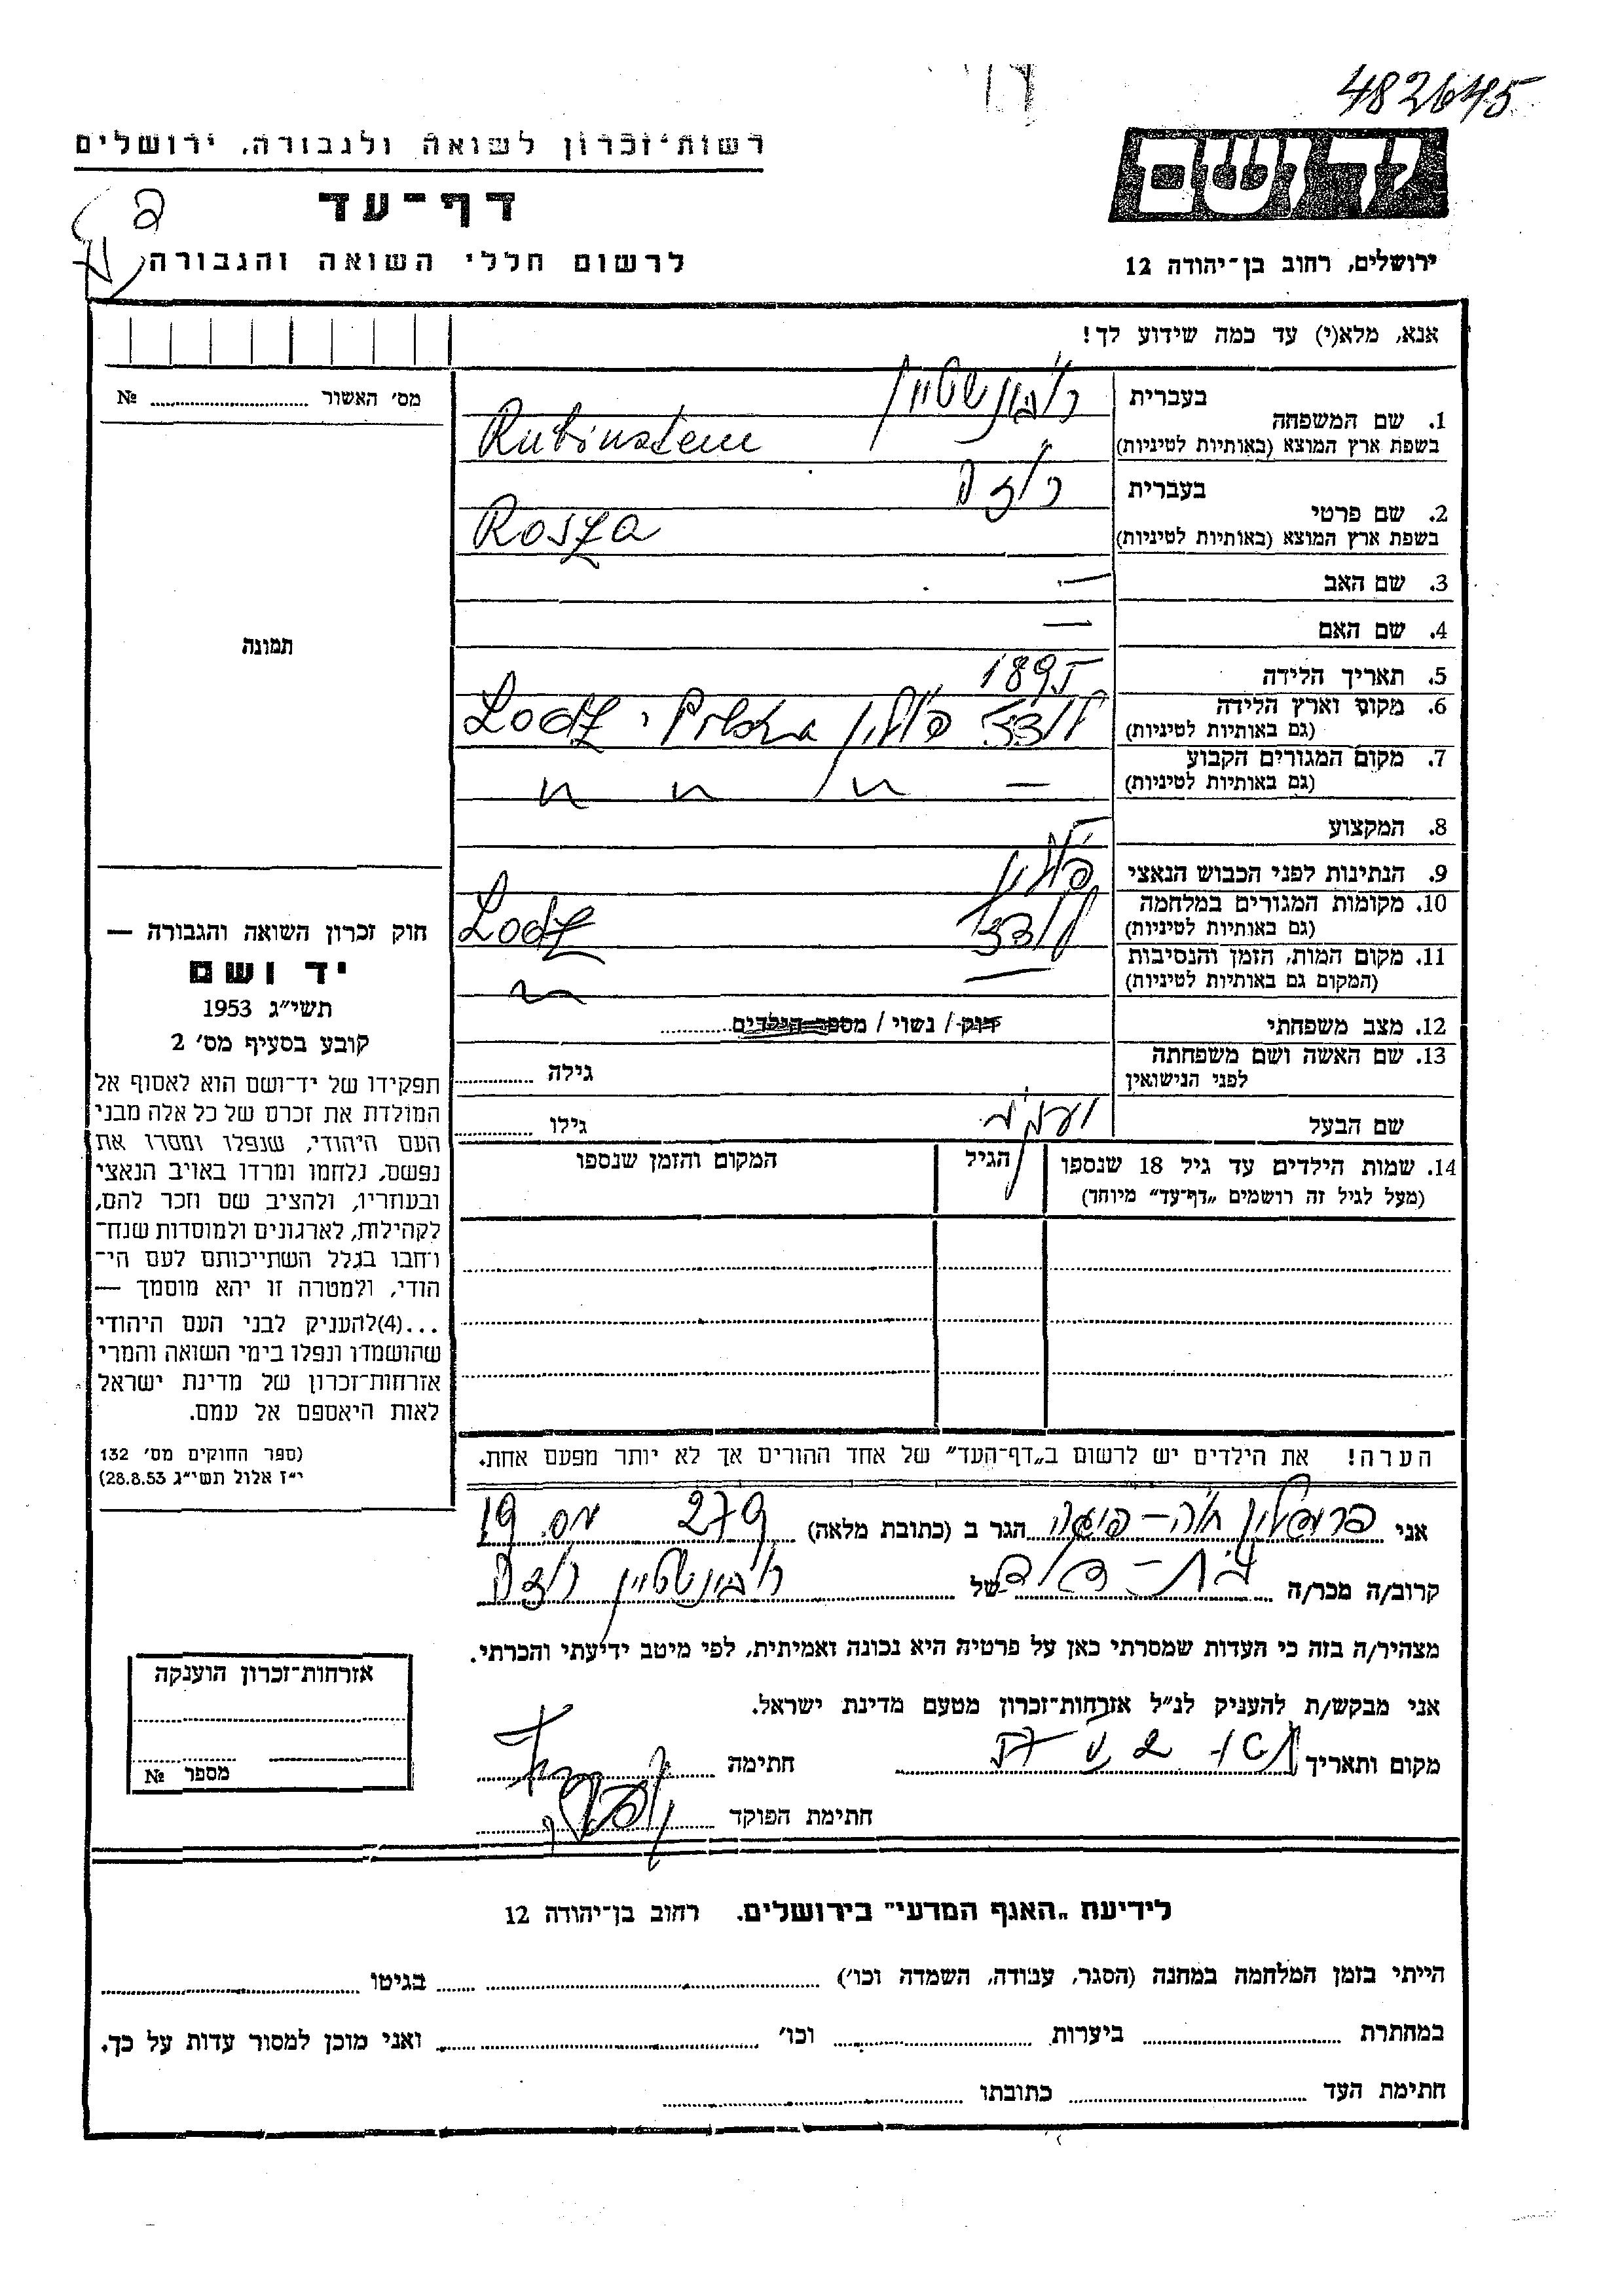 482645
רשות־זכרון לשואה ולגבורה, ירושלים
יד ושם
דף־עד
לרשום חללי השואה והגבורה
ירושלים, רחוב בן־יהודה 12
אנא, מלא(י) עד כמה שידוע לך!
מס׳ האשור № ........
1. שם המשפחה
בעברית רובינשטיין
בשפת ארץ המוצא (באותיות לטיניות) Rubinstein
2. שם פרטי
בעברית רוזה
בשפת ארץ המוצא (באותיות לטיניות) Rosza
3. שם האב —
4. שם האם —
תמונה
5. תאריך הלידה 1895
6. מקום וארץ הלידה
(גם באותיות לטיניות) לודז׳ פולין Lodz
7. מקום המגורים הקבוע
(גם באותיות לטיניות) — " " " "
8. המקצוע —
9. הנתינות לפני הכבוש הנאצי פולין
10. מקומות המגורים במלחמה
(גם באותיות לטיניות) לודז׳ Lodz
11. מקום המות, הזמן והנסיבות
(המקום גם באותיות לטיניות) —
12. מצב משפחתי רוק / נשוי / מספר הילדים ........
13. שם האשה ושם משפחתה
לפני הנישואין גילה ........
שם הבעל גילו ........
14. שמות הילדים עד גיל 18 שנספו
(מעל לגיל זה רושמים „דף־עד״ מיוחד)
הגיל
המקום והזמן שנספו
חוק זכרון השואה והגבורה —
יד ושם
תשי״ג 1953
קובע בסעיף מס׳ 2
תפקידו של יד־ושם הוא לאסוף אל
המולדת את זכרם של כל אלה מבני
העם היהודי, שנפלו ומסרו את
נפשם, נלחמו ומרדו באויב הנאצי
ובעוזריו, ולהציב שם וזכר להם,
לקהילות, לארגונים ולמוסדות שנח־
רחבו בגלל השתייכותם לעם הי־
הודי, ולמטרה זו יהא מוסמך —
...(4)להעניק לבני העם היהודי
שהושמדו ונפלו בימי השואה והמרי
אזרחות־זכרון של מדינת ישראל
לאות היאספם אל עמם.
(ספר החוקים מס׳ 132
י״ז אלול תשי״ג 28.8.53)
הערה! את הילדים יש לרשום ב„דף־העד״ של אחד ההורים אך לא יותר מפעם אחת.
אני הגר ב (כתובת מלאה) 279 מס. 19
קרוב/ה מכר/ה בת-דוד של רובינשטיין רוזה
מצהיר/ה בזה כי העדות שמסרתי כאן על פרטיה היא נכונה ואמיתית, לפי מיטב ידיעתי והכרתי.
אני מבקש/ת להעניק לנ״ל אזרחות־זכרון מטעם מדינת ישראל.
מקום ותאריך חתימה
חתימת הפוקד
אזרחות־זכרון הוענקה
מספר №
לידיעת „האגף המדעי״ בירושלים. רחוב בן־יהודה 12
הייתי בזמן המלחמה במחנה (הסגר, עבודה, השמדה וכו׳) ........ בגיטו ........
במחתרת ........ ביערות ........ וכו׳ ........ ואני מוכן למסור עדות על כך.
חתימת העד ........ כתובתו ........